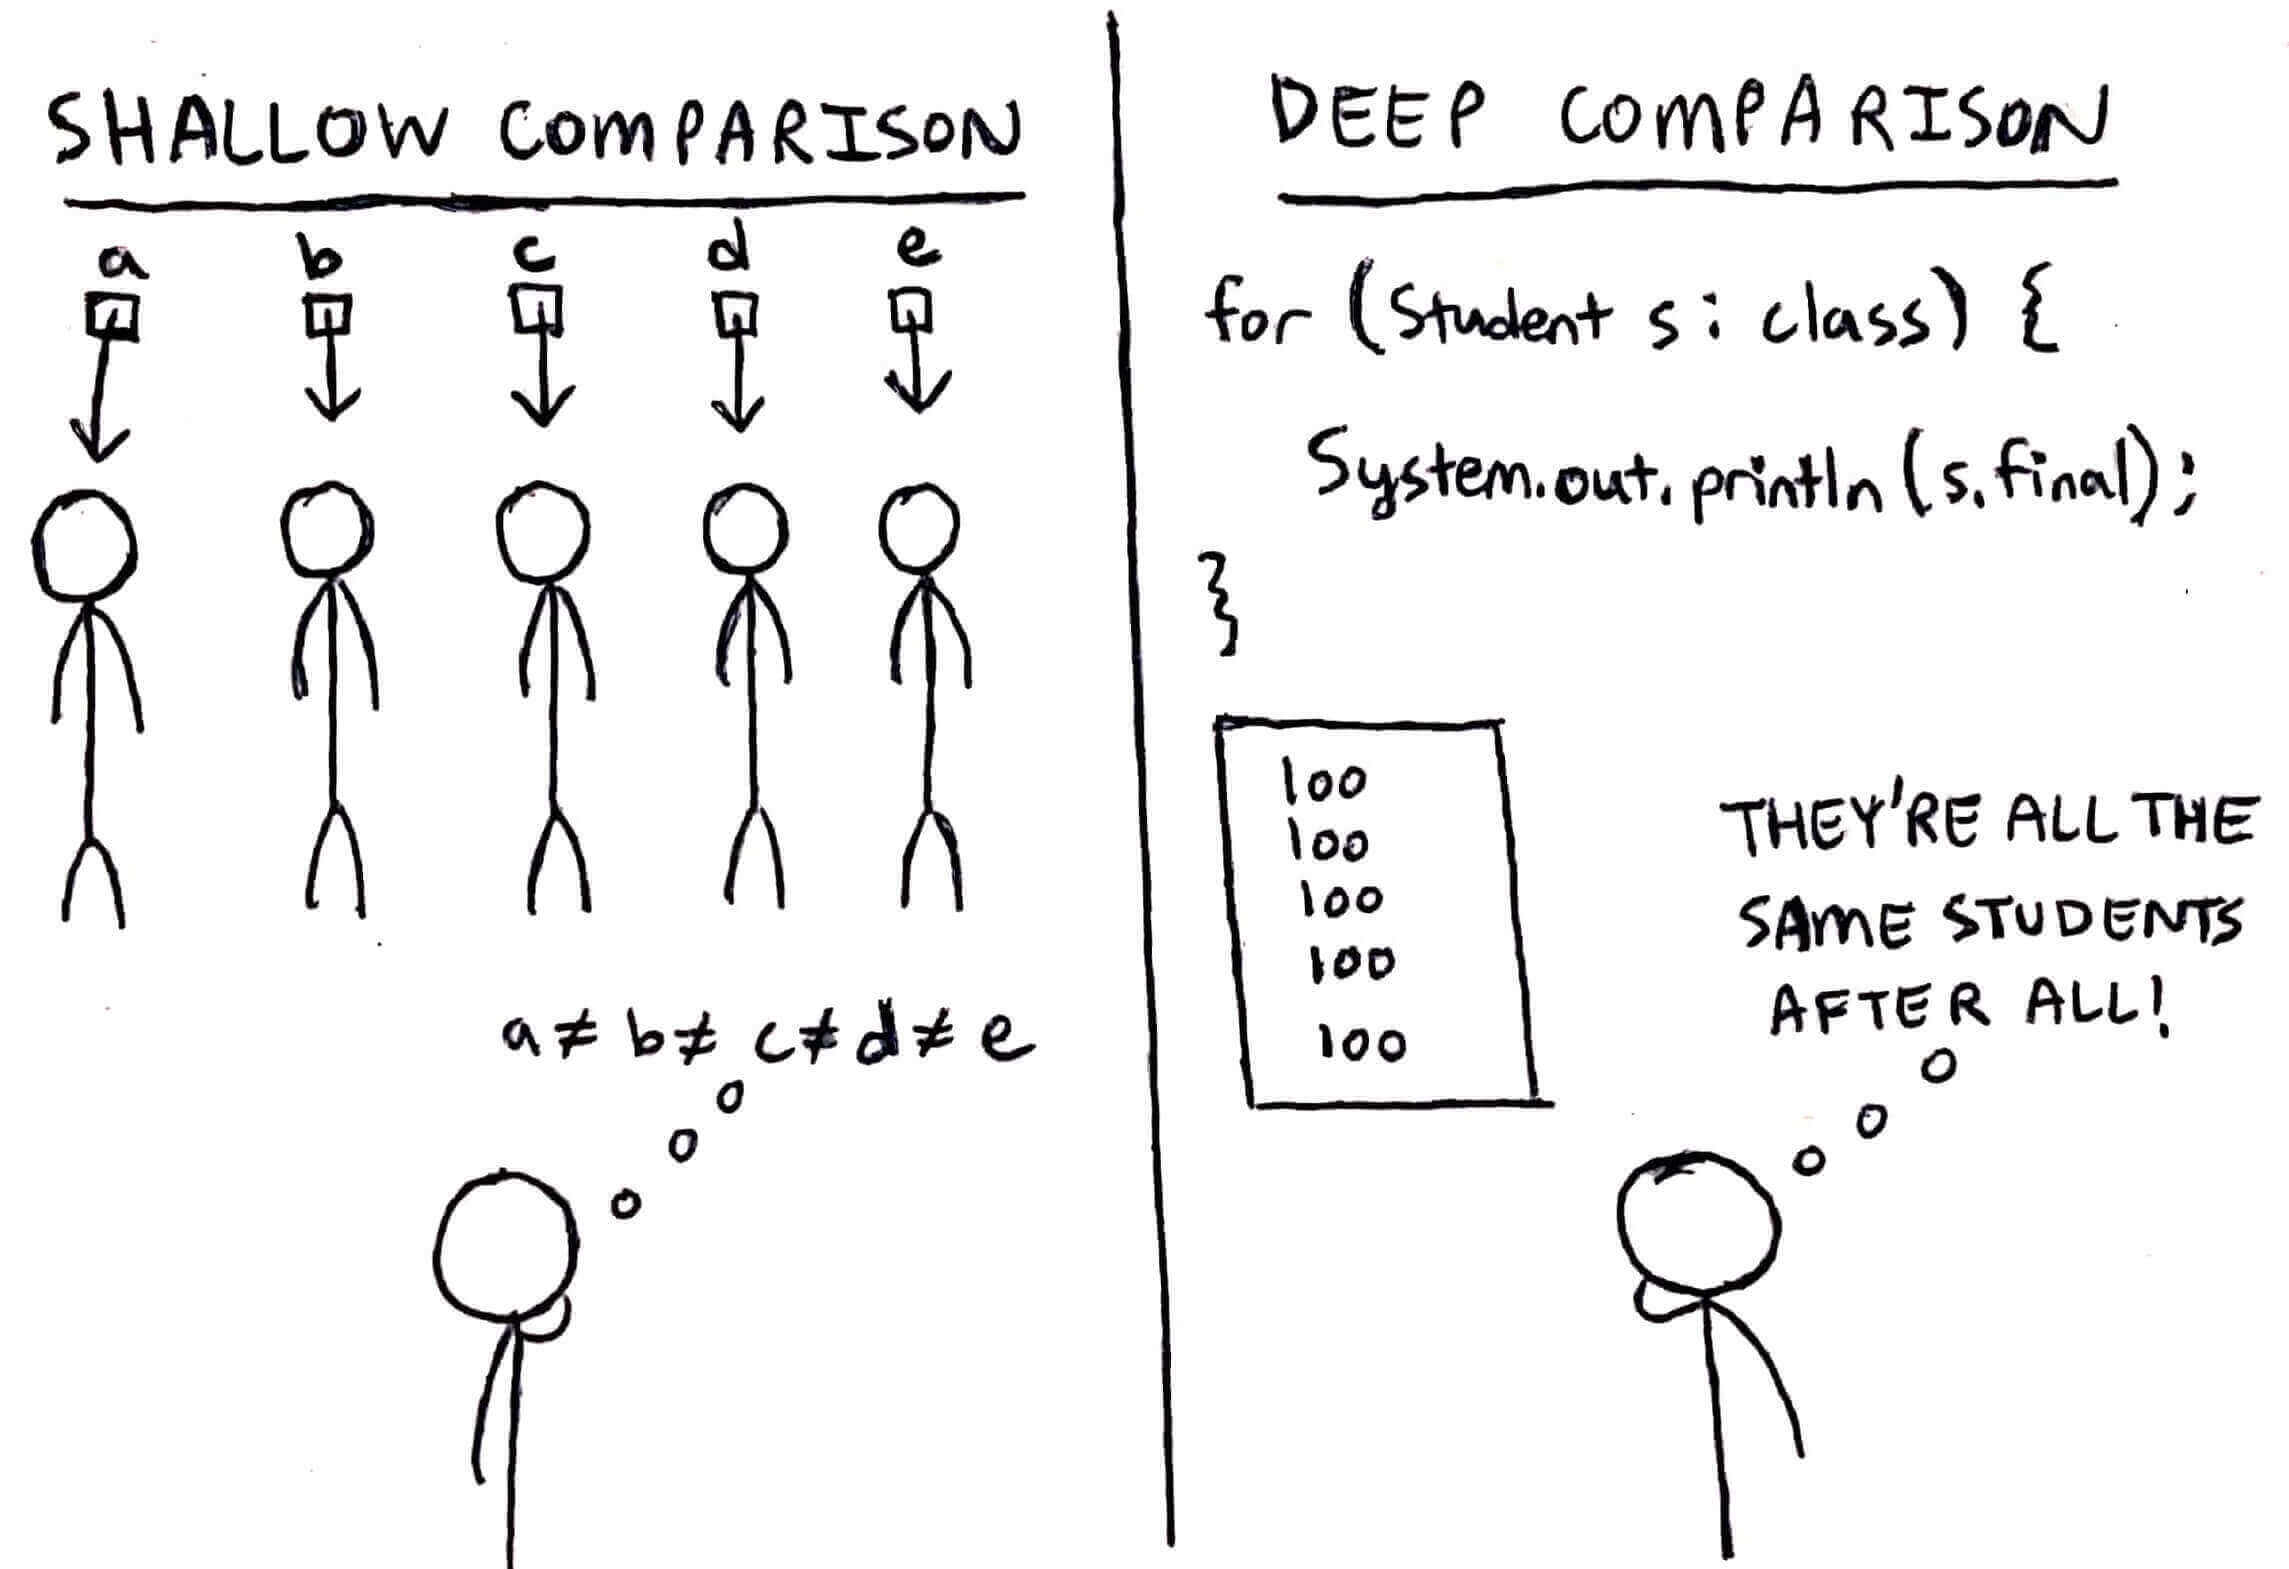 SHALLOW COMPARISON
a b c d e
a ≠ b ≠ c ≠ d ≠ e
DEEP COMPARISON
for (Student s : class) {
System.out.println(s.final);
}
100
100
100
100
100
THEY'RE ALL THE
SAME STUDENTS
AFTER ALL!